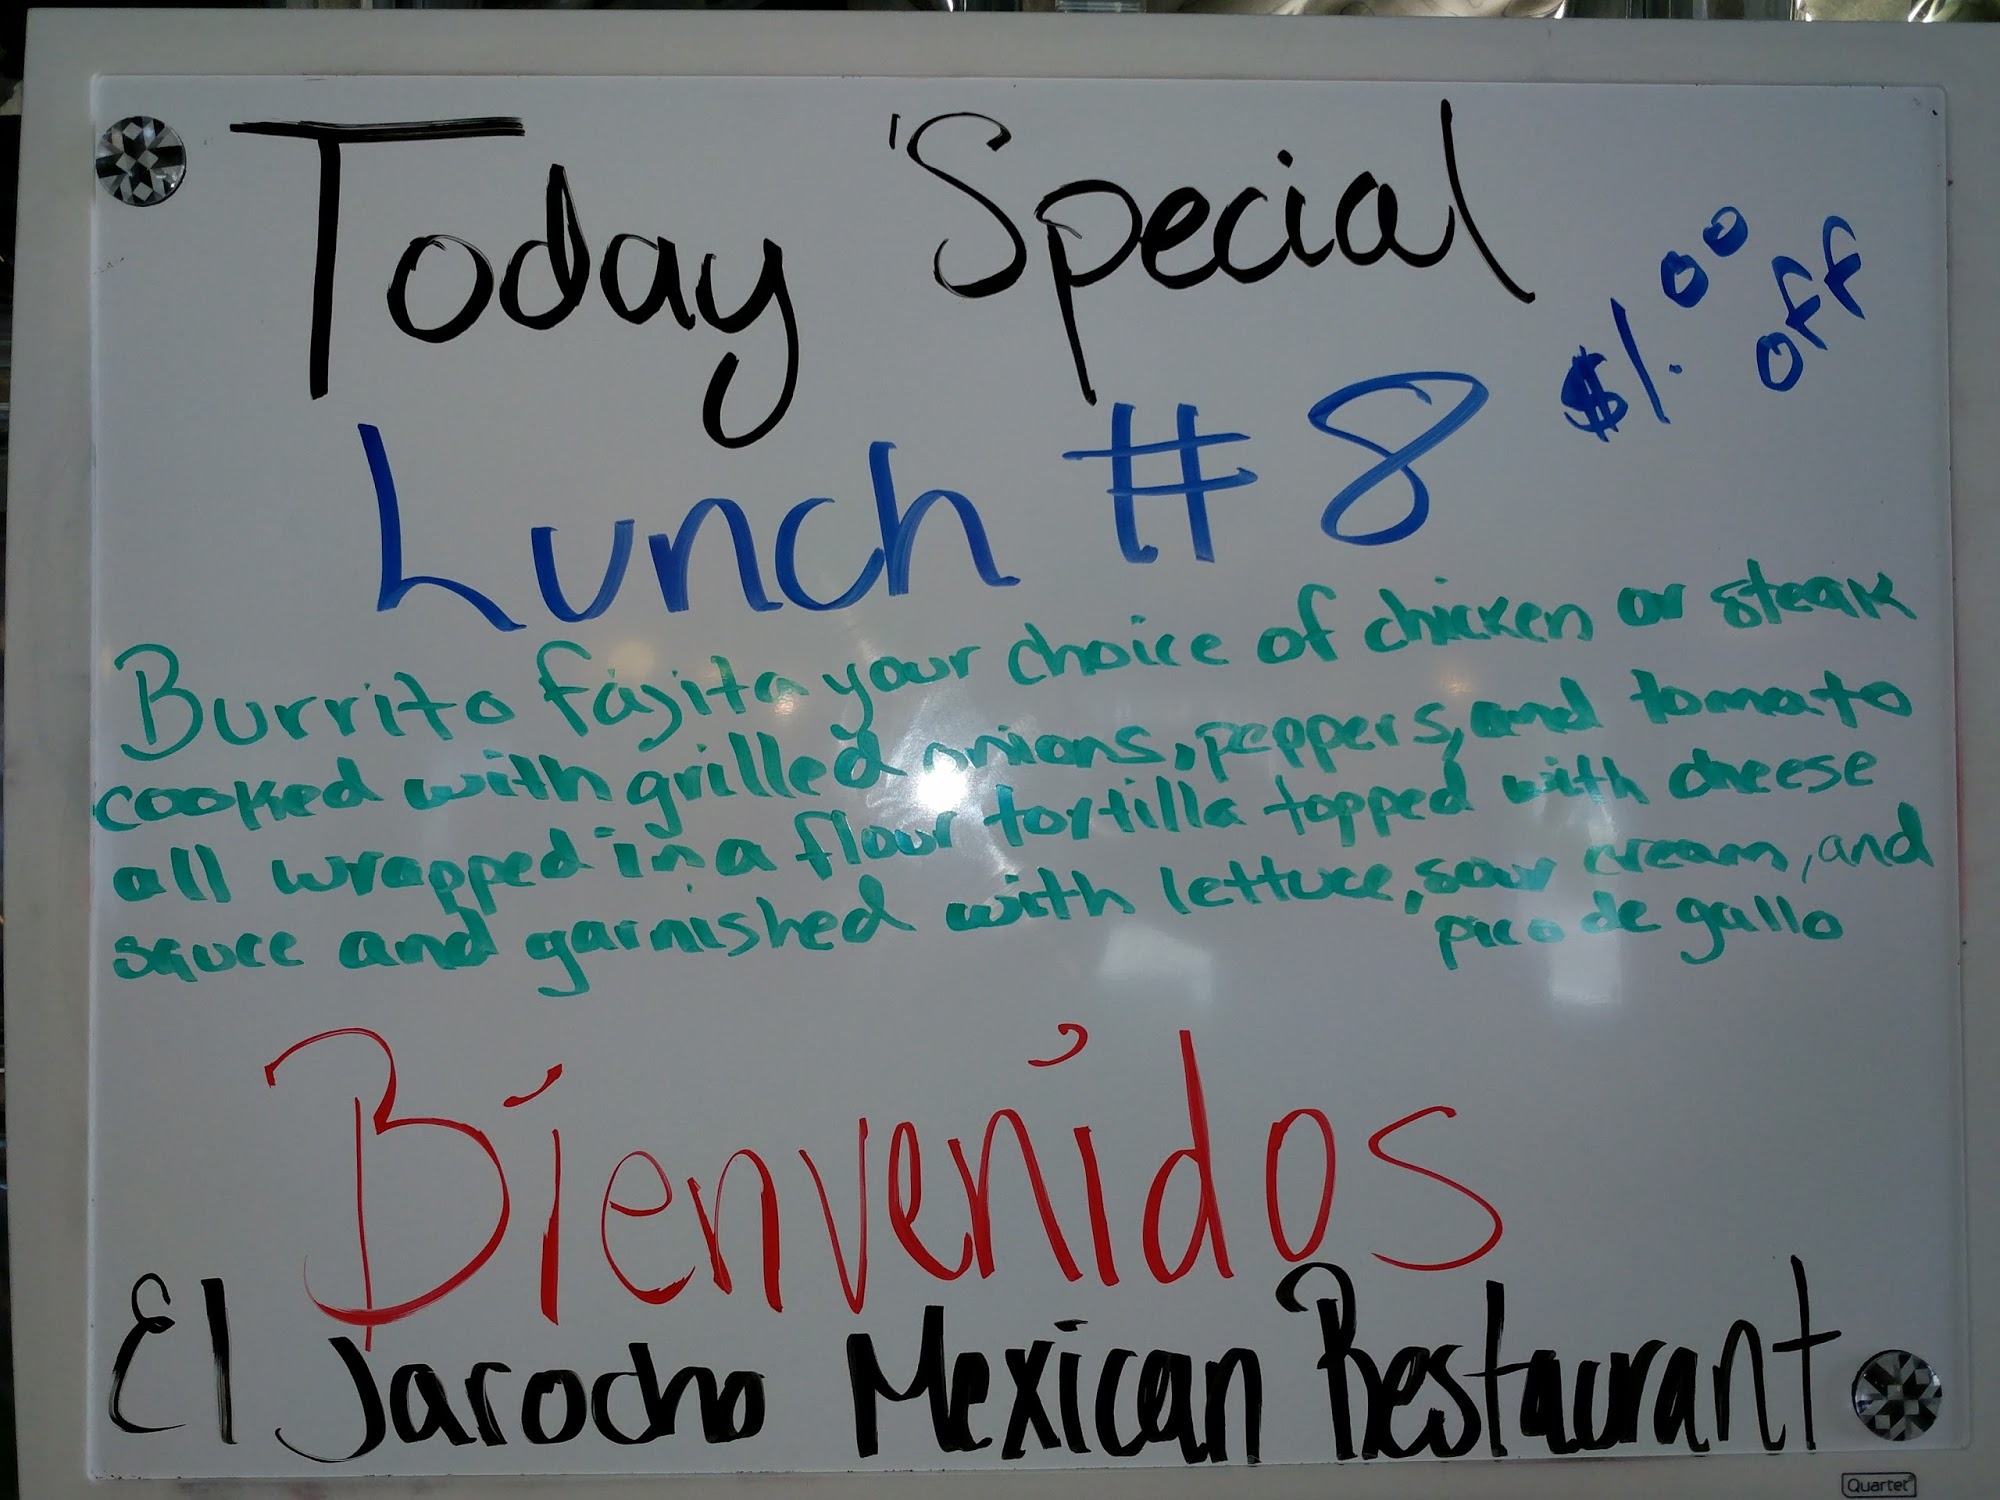 Today 'Special
$1.00 off
Lunch #8
Burrito fajita your choice of chicken or steak
cooked with grilled onions, peppers, and tomato
all wrapped in a flour tortilla topped with cheese
sauce and garnished with lettuce, sour cream, and
pico de gallo
Bienvenidos
El Jarocho Mexican Restaurant
Quartet